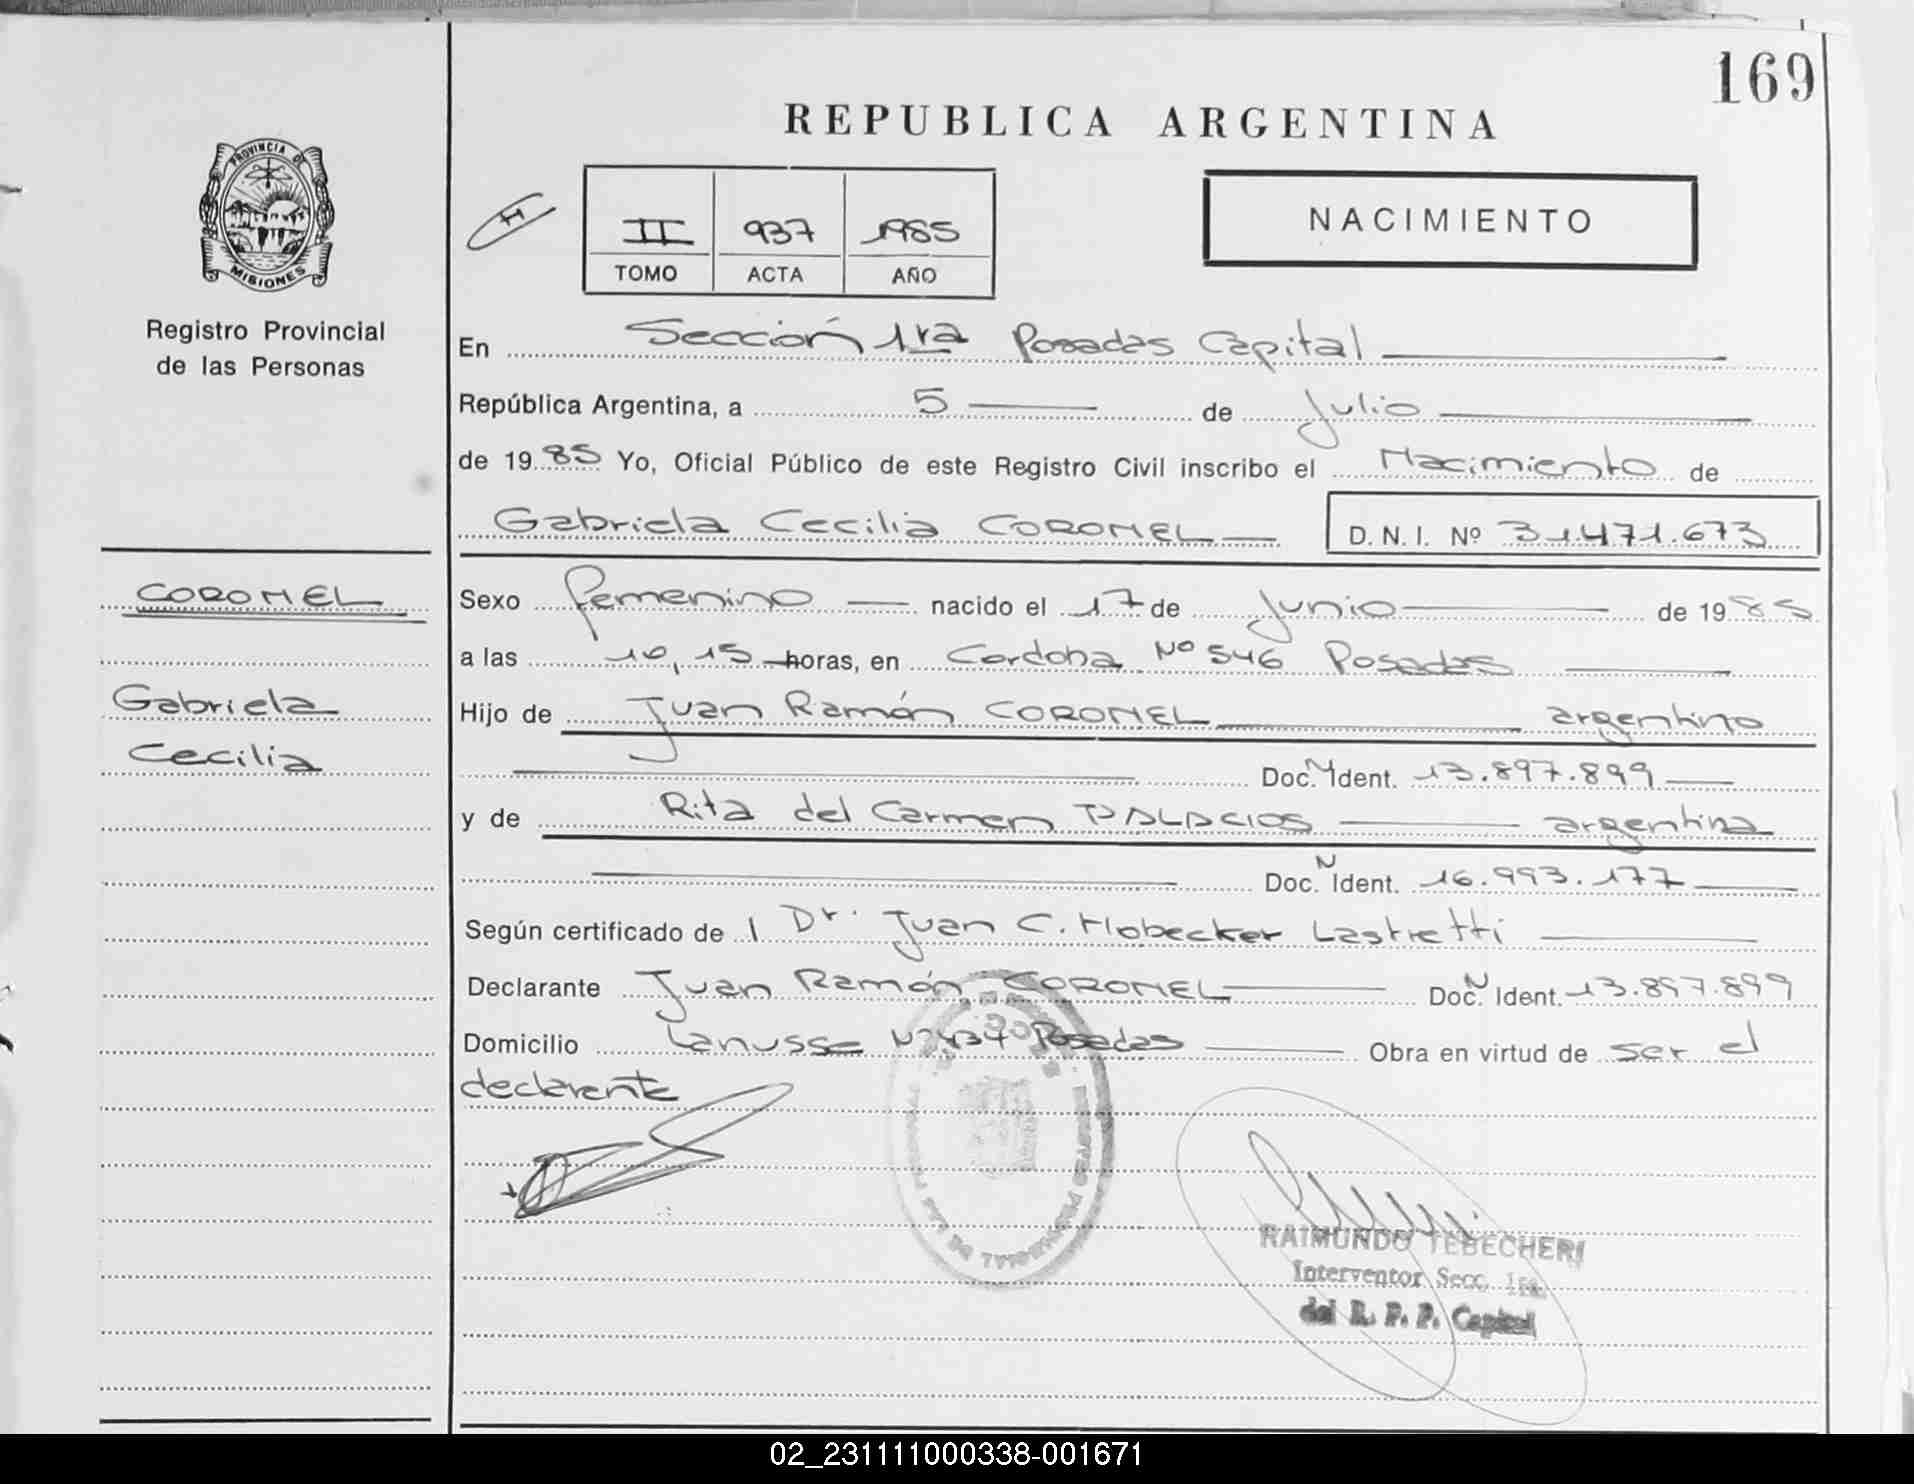 169
REPUBLICA ARGENTINA
PROVINCIA DE
MISIONES
Registro Provincial
de las Personas
H
II 937 1985
TOMO ACTA AÑO
NACIMIENTO
En Sección 1ra Posadas Capital
República Argentina, a 5 de Julio
de 1985 Yo, Oficial Público de este Registro Civil inscribo el Nacimiento de
Gabriela Cecilia CORONEL D. N. I. Nº 31.471.673
CORONEL
Gabriela
Cecilia
Sexo femenino nacido el 17 de Junio de 1985
a las 10,15 horas, en Cordoba Nº 546 Posadas
Hijo de Juan Ramón CORONEL argentino
Doc. N Ident. 13.897.899
y de Rita del Carmen PALACIOS argentina
Doc. N Ident. 16.993.177
Según certificado de l Dr. Juan C. Hobecker Lastretti
Declarante Juan Ramón CORONEL Doc. N Ident. 13.897.899
Domicilio Lanusse Nº 434 Posadas Obra en virtud de ser el
declarante
RAIMUNDO TEBECHERI
Interventor Secc. 1ra.
del R. P. P. Capital
02_231111000338-001671